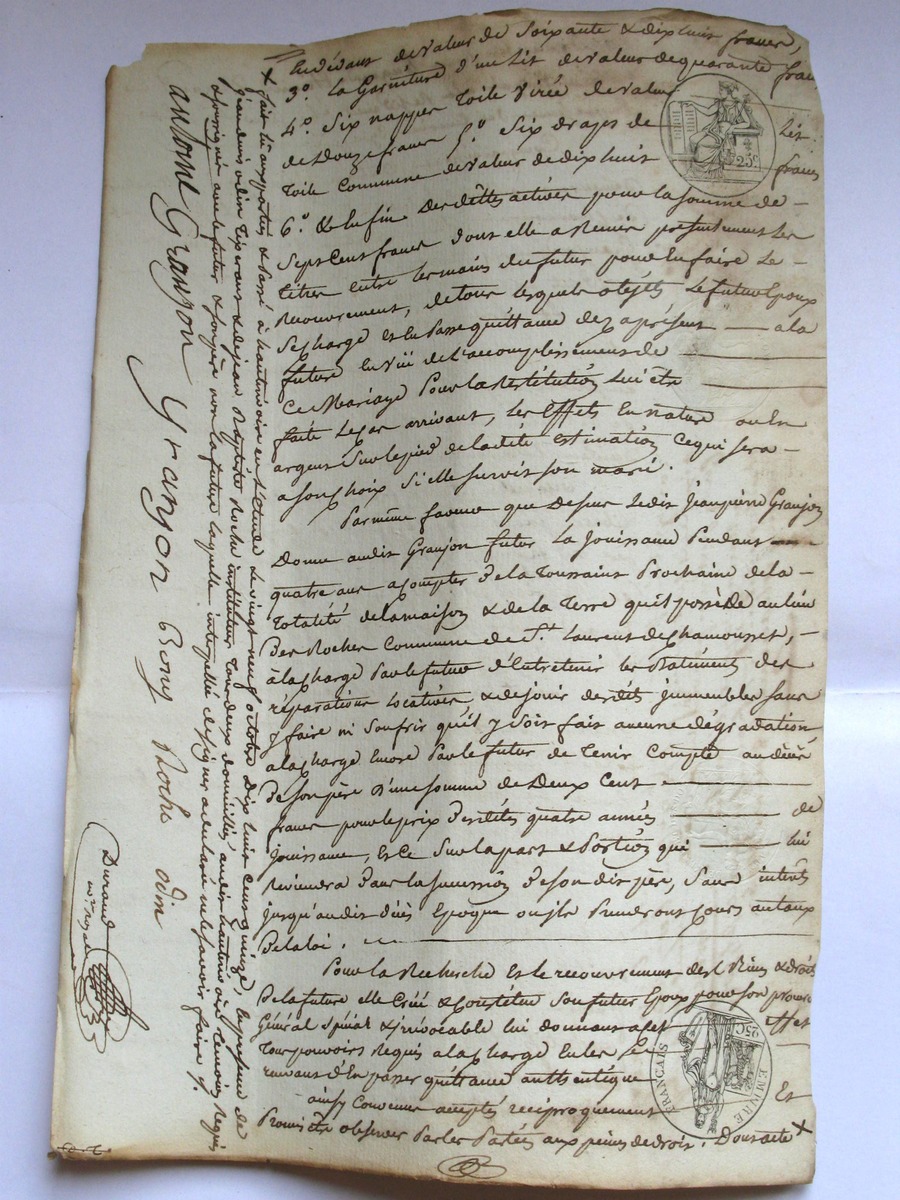 En devant de valeur de Soixante & dix huit francs,
3º. La Garniture d'un Lit de valeur de quarante fran
4º. Six nappes Toile de valeur
de Douze francs 5º. Six draps de Lit
Toile Commune de valeur de dix huit francs
6º. & Enfin des dettes actives pour la Somme de -
Sept Cent francs dont elle a Remis présentement Les
titres entre les mains du futur pour En faire Le -
Recouvrement, de tous lesquels objets Le futur Epoux
Se Charge et En Passe quittance dez aprésent — a la
future En Vüe de L'accomplissement de
Ce Mariage Pour la Restitution Lui être
faite Le Cas arrivant, Les Effets En nature ou En
argent Sur le pied de la dite Estimation Ce qui Sera -
a Son Choix Si Elle Survit Son mari.
Par même faveur que Dessus Ledit Jean pierre Granjon
Donne audit Granjon futur La Jouissance Pendant
quatre ans a Compter De la Toussaint Prochaine de la -
Totalité de la maison & de la Terre qu'il possède au lieu
Des Roches Commune de St. Laurent de Chamousset, -
à la Charge Par le futur d'Entretenir les Batiments des
réparations Locatives & de jouir desdits Immeubles Sans
y faire ni Soufrir qu'il y Soit fait aucune dégradation,
a la Charge Encore Par le futur de Tenir Compte au décès
De Son père D'une Somme de Deux Cent
francs pour le prix Desdites quatre années — de
Jouissance, Et Ce Sur la part & Portion qui — lui
Reviendra Dans la Succession De Son dit père, Sans intérêts
jusqu'au dit décès Epoque ou ils Prendront Cours au taux
De la loi.
Pour la Recherche Et le recouvrement des Biens & droits
De la future elle Créé & Constitue Son futur Epoux pour Son procureur
Général Spécial & irrévocable lui donnant a cet Effet
Tous pouvoirs Requis a la Charge
d'En passer quittance authentique
ainsy Convenu accepté réciproquement Et
Promis être observé Par les Parties aux peines de droit. Dont acte X
25C.
EMPIRE FRANÇAIS
25C
X fait Lu aux parties & Passé à hauterivoire en L'Etude Le vingt neuf octobre Dix huit Cent quinze, En présence de
Jean Baptiste Roche instituteur Tous deux domiciliés audit hauterivoire Témoins Requis
Soussignés avec le futur & Son père non la future laquelle interpellée de Signer a déclaré ne le Savoir faire
antoine Granjon Granjon Bony Roche odin
Durand
nre royal